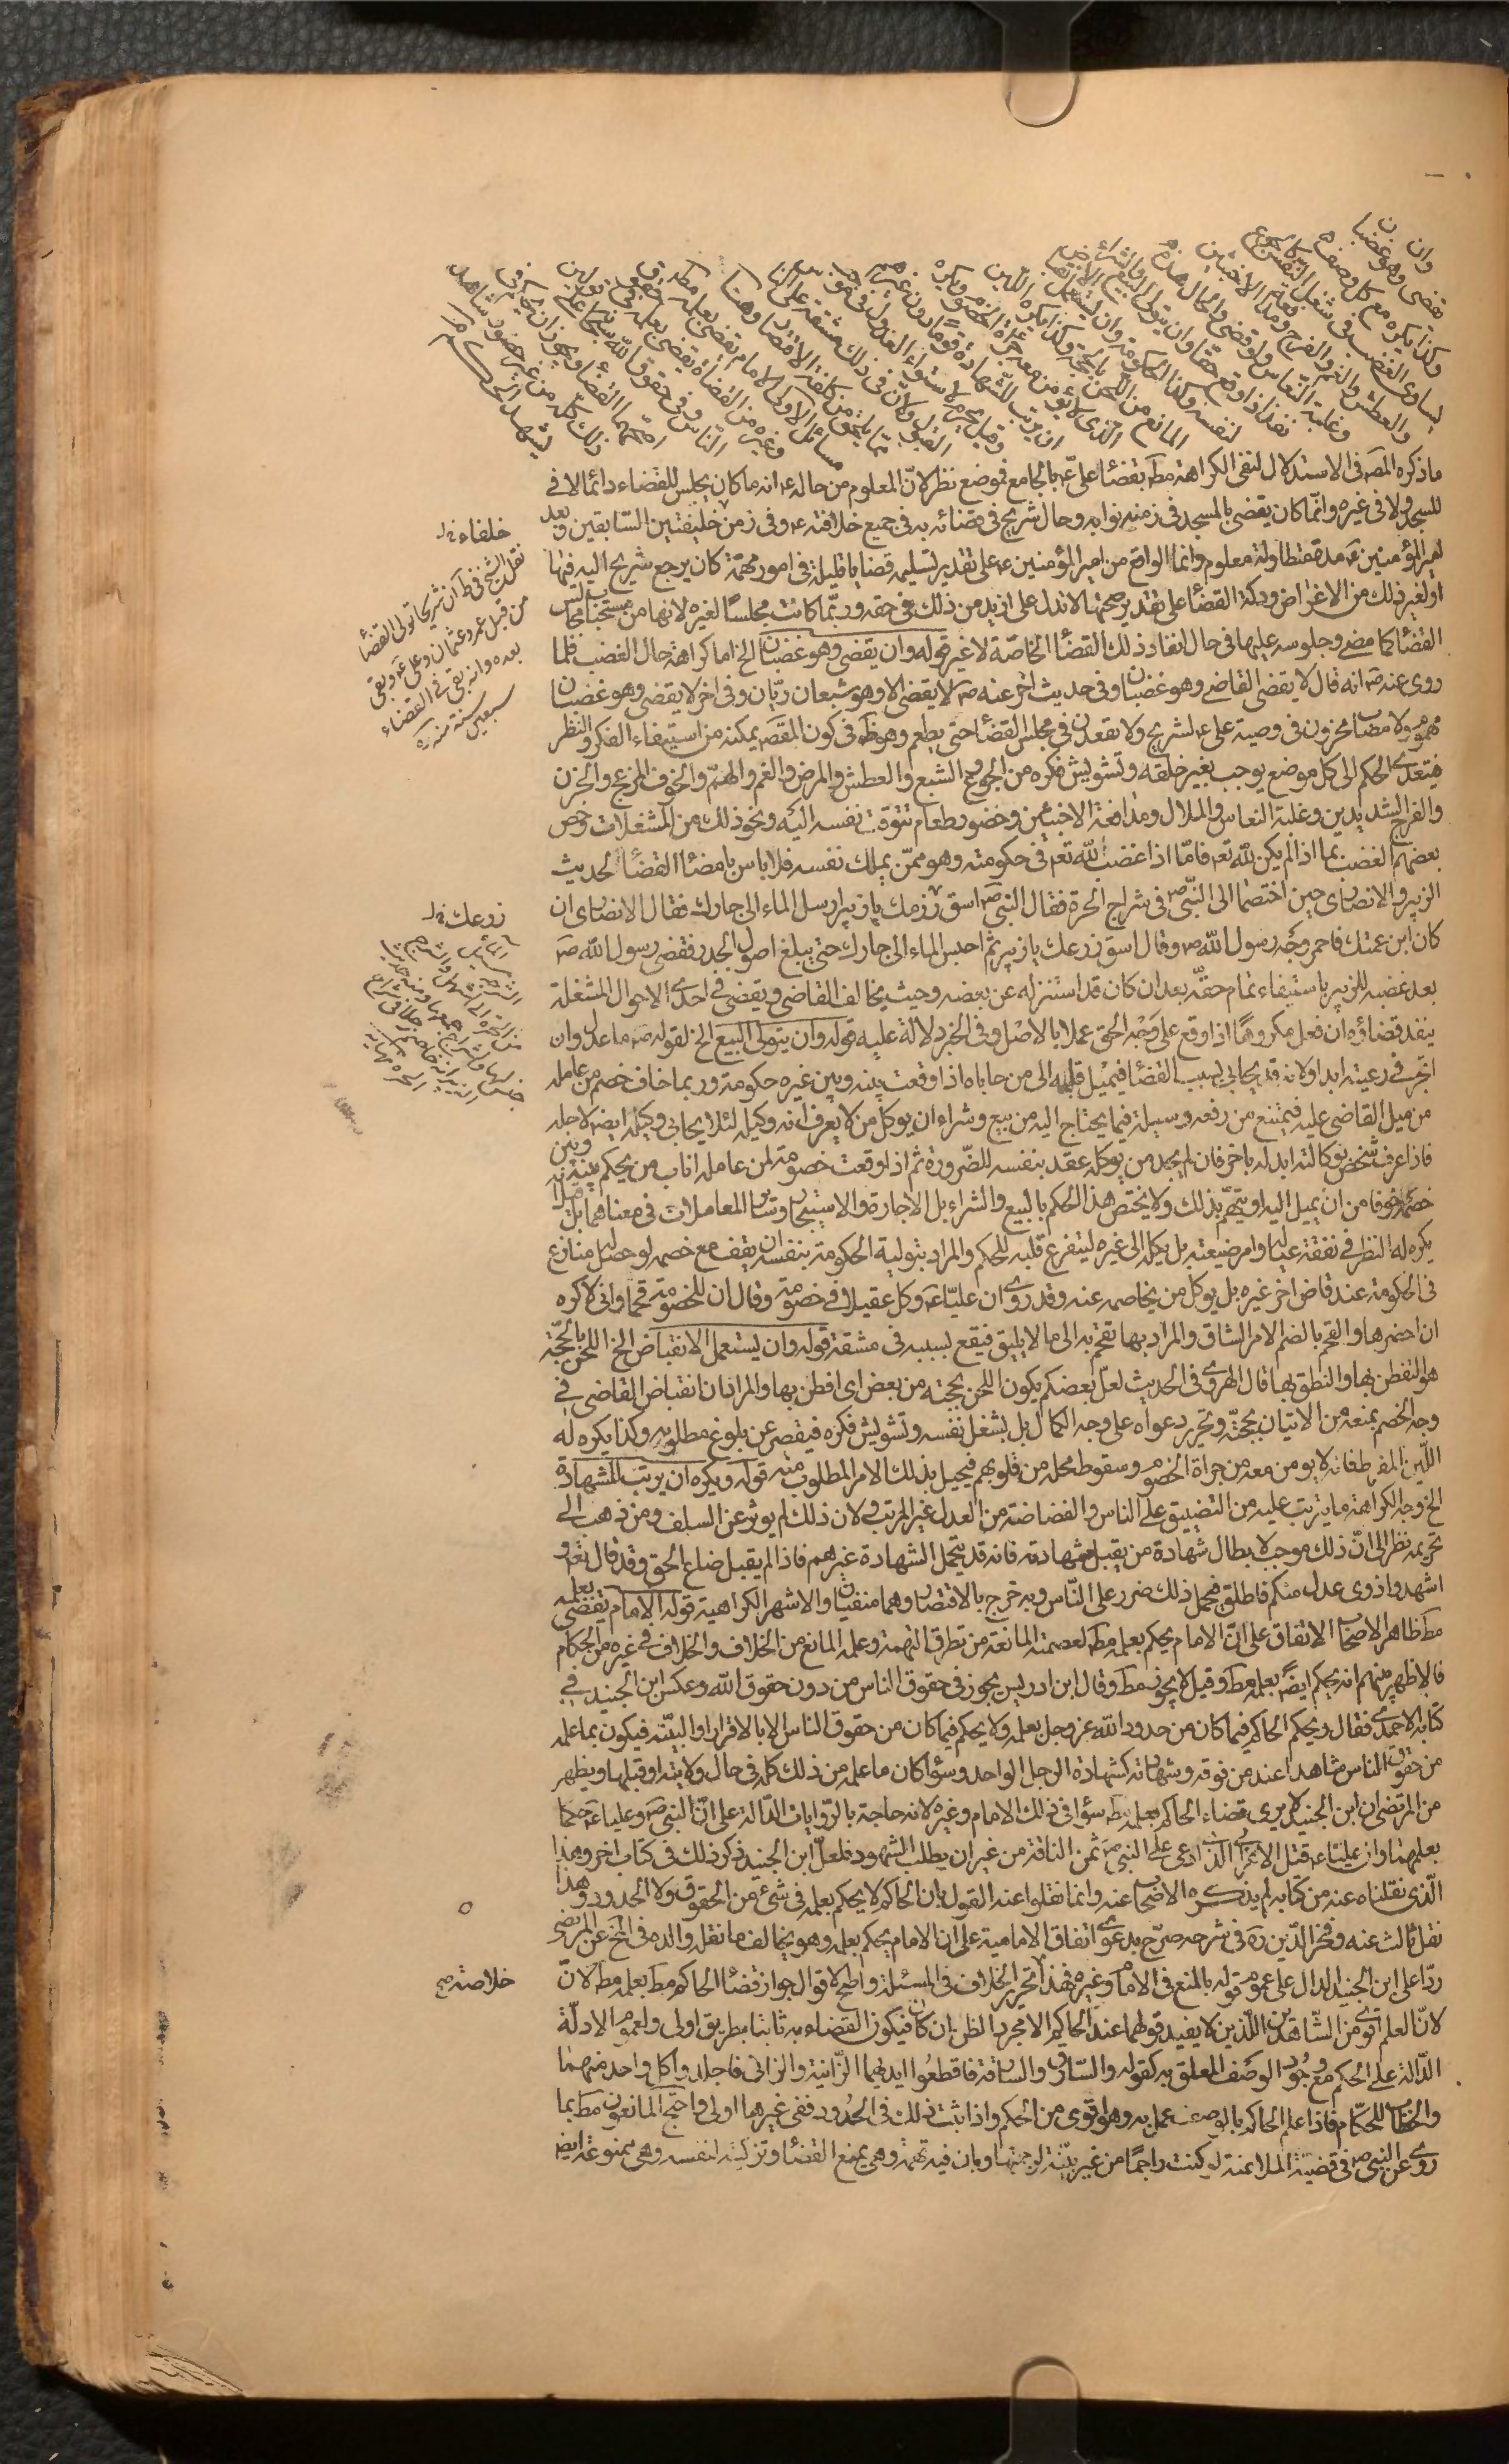 وان
يقضى وهو غضبان
وكذا يكره مع كل وصف
يساوى الغضب فى شغل النفس كالجوع
والعطش والغم والفرح ومدافعة الاخبثين
وغلبة النعاس ولو قضى والحال هذه
نفذ اذا وقع حقا وان يتولى البيع والشراء
لنفسه وكذا الحكومة وان يستعمل الانقباض
المانع من اللحن بالحجة وكذا يكره اللين
الذى لا يؤمن معه جرأة الخصوم ويكره
ان يرتب للشهادة قوما دون غيرهم
وقيل يحرم لاستواء العدول فى موجب
القبول ولان فى ذلك مشقة على الناس
بما يلحق من كلفة الاقتصار وهنا
مسائل الاولى الامام يقضى بعلمه مطلقا
وغيره من القضاة يقضى بعلمه فى حقوق
الناس وفى حقوق الله سبحانه على قولين
اصحهما القضاء ويجوز ان يحكم فى
ذلك كله من غير حضور شاهد
يشهد الحكم
ما ذكره المص فى الاستدلال لنفى الكراهة مط بقضاء على ع بالجامع فموضع نظر لان المعلوم من حاله ع انه ما كان يجلس للقضاء دائما لا فى
المسجد ولا فى غيره وانما كان يقضى بالمسجد فى زمنه نوابه وحال شريح فى قضائه به فى جميع خلافته ع وفى زمن خليفتين السابقين وبعد
امير المؤمنين ع مدة متطاولة معلوم وانما الواقع من امير المؤمنين ع على تقدير تسليمه قضايا قليلة فى امور مهمة كان يرجع شريح اليه فيها
او لغير ذلك من الاغراض ودكة القضاء على تقدير صحتها لا تدل على ازيد من ذلك فى حقه وربما كانت مجلسا لغيره لانها من مستحبات مجالس
القضاء كما مضى وجلوسه عليها فى حال انفاذ ذلك القضاء الخاصة لا غير قوله وان يقضى وهو غضبان الخ اما كراهة حال الغضب فلما
روى عنه ص انه قال لا يقضى القاضى وهو غضبان وفى حديث اخر عنه ص لا يقضى الا وهو شبعان ريان وفى اخر لا يقضى وهو غضبان
مهموم ولا مصاب محزون فى وصية على ع لشريح ولا تقعدن فى مجلس القضاء حتى يطعم وهو ظ فى كون المقصد يمكنه من استيفاء الفكر والنظر
فيتعدى الحكم الى كل موضع يوجب تغير خلقه وتشويش فكره من الجوع والشبع والعطش والمرض والغم والهم والخوف المزعج والحزن
والفرح الشديدين وغلبة النعاس والملال ومدافعة الاخبثين وحضور طعام تتوق نفسه اليه ونحو ذلك من المشغلات وخص
بعضهم الغضب بما اذا لم يكن لله تعه فاما اذا غضب لله تعه فى حكومته وهو ممن يملك نفسه فلا باس بامضاء القضاء لحديث
الزبير والانصارى حين اختصما الى النبى ص فى شراج الحرة فقال النبى ص اسق زرعك يا زبير ارسل الماء الى جارك فقال الانصارى ان
كان ابن عمتك فاحمر وجه رسول الله ص وقال اسق زرعك يا زبير ثم احبس الماء الى جارك حتى يبلغ اصول الجدر فقضى رسول الله ص
بعد غضبه للزبير باستيفاء تمام حقه بعد ان كان قد استنزله عن بعضه وحيث يخالف القاضى ويقضى فى احدى الاحوال المشغلة
ينفذ قضاؤه ان فعل مكروها اذا وقع على وجه الحق عملا بالاصل وفى الخبر دلالة عليه قوله وان يتولى البيع الخ لقوله ص ما عدل وال
اتجر فى رعيته ابدا ولانه قد يحابى بسبب القضاء فيميل قلبه الى من حاباه اذا وقعت بينه وبين غيره حكومة وربما خاف خصم من عامله
من ميل القاضى عليه فيمتنع من رفعه وسبيله فيما يحتاج اليه من بيع وشراء ان يوكل من لا يعرف انه وكيله لئلا يحابى وكيله ايضه لاجله
فاذا عرف شخص بوكالته ابدله باخر فان لم يجد من يوكله عقد بنفسه للضرورة ثم اذا وقعت خصومة لمن عامله اناب من يحكم بينه وبين
خصمه خوفا من ان يميل اليه او يتهم بذلك ولا يختص هذا الحكم بالبيع والشراء بل الاجارة والاستيجار وساير المعاملات فى معناهما بل
يكره له النظر فى نفقة عياله وامر ضيعته بل يكله الى غيره ليتفرغ قلبه للحكم والمراد بتولية الحكومة بنفسه ان يقف مع خصمه لو حصل منازع
فى الحكومة عند قاض اخر غيره بل يوكل من يخاصم عنه وقد روى ان عليا ع وكل عقيلا فى خصومة وقال ان للخصومة قحما وانى لاكره
ان احضرها والقحم بالضم الامر الشاق والمراد بها تقحم به الى ما لا يليق فيقع بسببه فى مشقة قوله وان يستعمل الانقباض الخ اللحن بالحجة
هو التفطن بها والنطق بها قال الهروى فى الحديث لعل بعضكم يكون الحن بحجته من بعض اى افطن بها والمراد ان انقباض القاضى فى
وجه الخصم يمنعه من الاتيان بحجته وتحرير دعواه على وجه الكمال بل يشغل نفسه وتشويش فكره فيقصر عن بلوغ مطلوبه وكذا يكره له
اللين المفرط فانه لا يومن معه من جرأة الخصوم وسقوط محله من قلوبهم فيحيل بذلك الامر المطلوب منه قوله ويكره ان يرتب للشهادة
الخ وجه الكراهة ما يترتب عليه من التضييق على الناس والغضاضة من العدل غير المرتب ولان ذلك لم يوثر عن السلف ومن ذهب الى
تحريمه نظر الى ان ذلك موجب لابطال شهادة من يقبل شهادته فانه قد يتحمل الشهادة غيرهم فاذا لم يقبل ضاع الحق وقد قال تعه و
اشهدوا ذوى عدل منكم فاطلق فحمل ذلك ضرر على الناس وبه خرج بالاقتصار وهما منفيان والاشهر الكراهية قوله الامام يقضى بعلمه
مط ظاهر الاصحاب الاتفاق على ان الامام يحكم بعلمه مط لعصمته المانعة من تطرق التهمة وعلمه المانع من الخلاف والخلاف فى غيره من الحكام
فالاظهر منهم انه يحكم ايضا بعلمه مط وقيل لا يجوز مط وقال ابن ادريس يجوز فى حقوق الناس من دون حقوق الله وعكس ابن الجنيد فى
كتابه الاحمدى فقال ويحكم الحاكم فيما كان من حدود الله عز وجل بعلمه ولا يحكم فيما كان من حقوق الناس الا بالاقرار او البينة فيكون بما علمه
من حقوق الناس مشاهدا عند من فوقه وشهادته كشهادة الرجل الواحد وسواء كان ما علمه من ذلك كله فى حال ولايته او قبلها ويظهر
من المرتضى ان ابن الجنيد لا يرى قضاء الحاكم بعلمه مط سواء فى ذلك الامام وغيره لانه حاجه بالروايات الدالة على ان النبى ص وعليا ع حكما
بعلمهما وان عليا ع قتل الاعرابى الذى ادعى على النبى ص ثمن الناقة من غير ان يطلب الشهود فلعل ابن الجنيد ذكر ذلك فى كتاب اخر وهذا
الذى نقلناه عنه من كتابه لم يذكره الاصحاب عنه وانما نقلوا عنه القول بان الحاكم لا يحكم بعلمه فى شئ من الحقوق ولا الحدود وهذا
نقل ثالث عنه وفخر الدين ره فى شرحه صرح بدعوى اتفاق الامامية على ان الامام يحكم بعلمه وهو يخالف ما نقله والده فى لخ عن المرتضى
ردا على ابن الجنيد الدال على عموم قوله بالمنع فى الامام وغيره فهذا تحرير الخلاف فى المسئلة واصح الاقوال جواز قضاء الحاكم مط بعلمه مط لان
لان العلم اقوى من الشاهدين اللذين لا يفيد قولهما عند الحاكم الا مجرد الظن ان كان فيكون القضاء به ثابتا بطريق اولى ولعموم الادلة
الدالة على الحكم مع وجود الوصف المعلق به كقوله والسارق والسارقة فاقطعوا ايديهما الزانية والزانى فاجلدوا كل واحد منهما
والخطاب للحكام فاذا علم الحاكم بالوصف عمل به وهو اقوى من الحكم واذا ثبت ذلك فى الحدود ففى غيرها اولى واحتج المانعون مط بما
روى عن النبى ص فى قضية الملاعنة لو كنت راجما من غير بينة لرجمتها وبان فيه تهمة وهى يمنع القضاء وتزكية لنفسه وهى ممنوعة ايضه
خلفاء خ ل
نقل الشيخ فى ط ان شريحا تولى القضاء
من قبل عمر وعثمان وعلى ع وبقى
بعده وانه بقى فى القضاء
سبعين سنة منه ره
زرعك خ ل
خلاصته صح